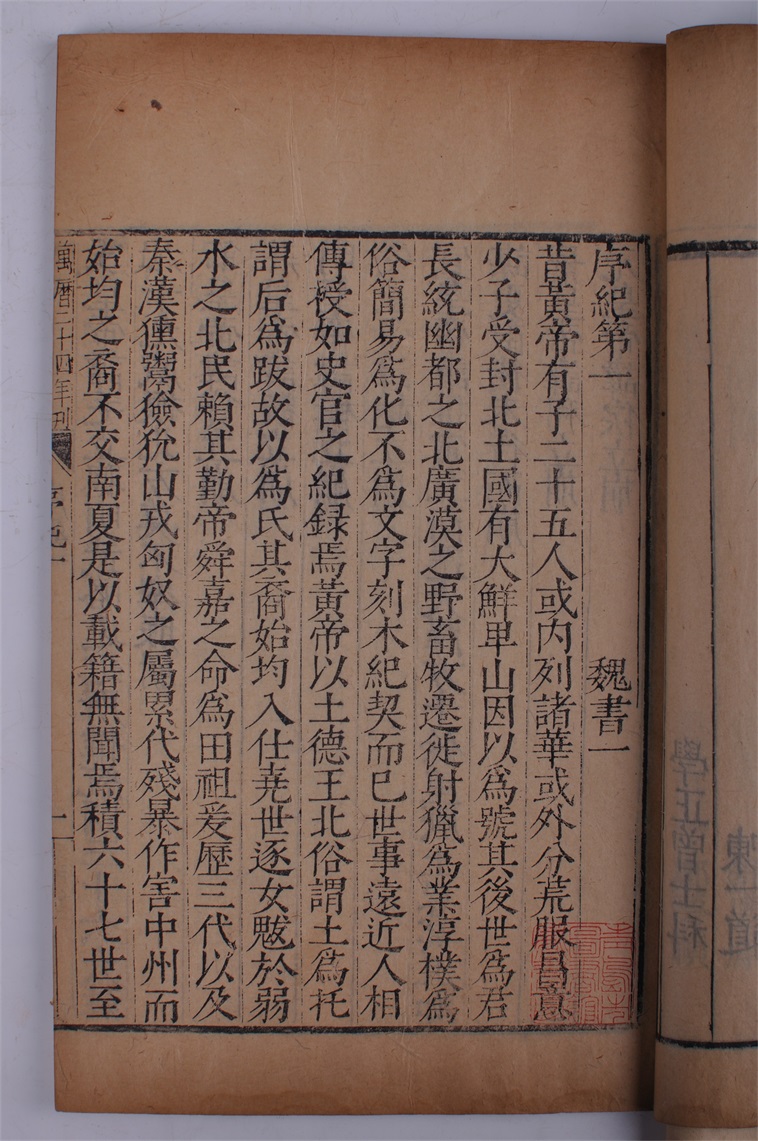 序紀第一 魏書一
昔黃帝有子二十五人或內列諸華或外分荒服昌意
少子受封北土國有大鮮卑山因以爲號其後世爲君
長統幽都之北廣漠之野畜牧遷徙射獵爲業淳樸爲
俗簡易爲化不爲文字刻木紀契而已世事遠近人相
傳授如史官之紀録焉黃帝以土德王北俗謂土爲托
謂后爲跋故以爲氏其裔始均入仕堯世逐女魃於弱
水之北民賴其勤帝舜嘉之命爲田祖爰歷三代以及
秦漢獯鬻獫狁山戎匈奴之屬累代殘暴作害中州而
始均之裔不交南夏是以載籍無聞焉積六十七世至
萬曆二十四年刊 序紀一